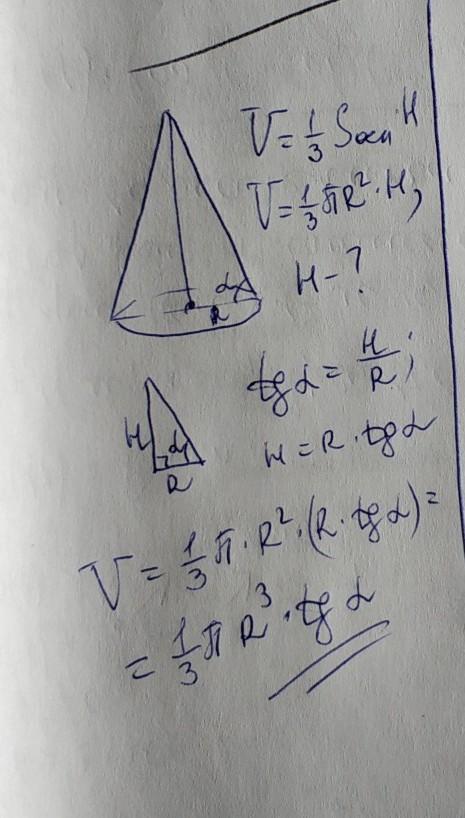 V = 1/3 Sосн H
V = 1/3 πR² · H,
H - ?
α
R
tg α = H/R ;
H = R · tg α
H
α
R
V = 1/3 π · R² · (R · tg α) =
= 1/3 π R³ · tg α